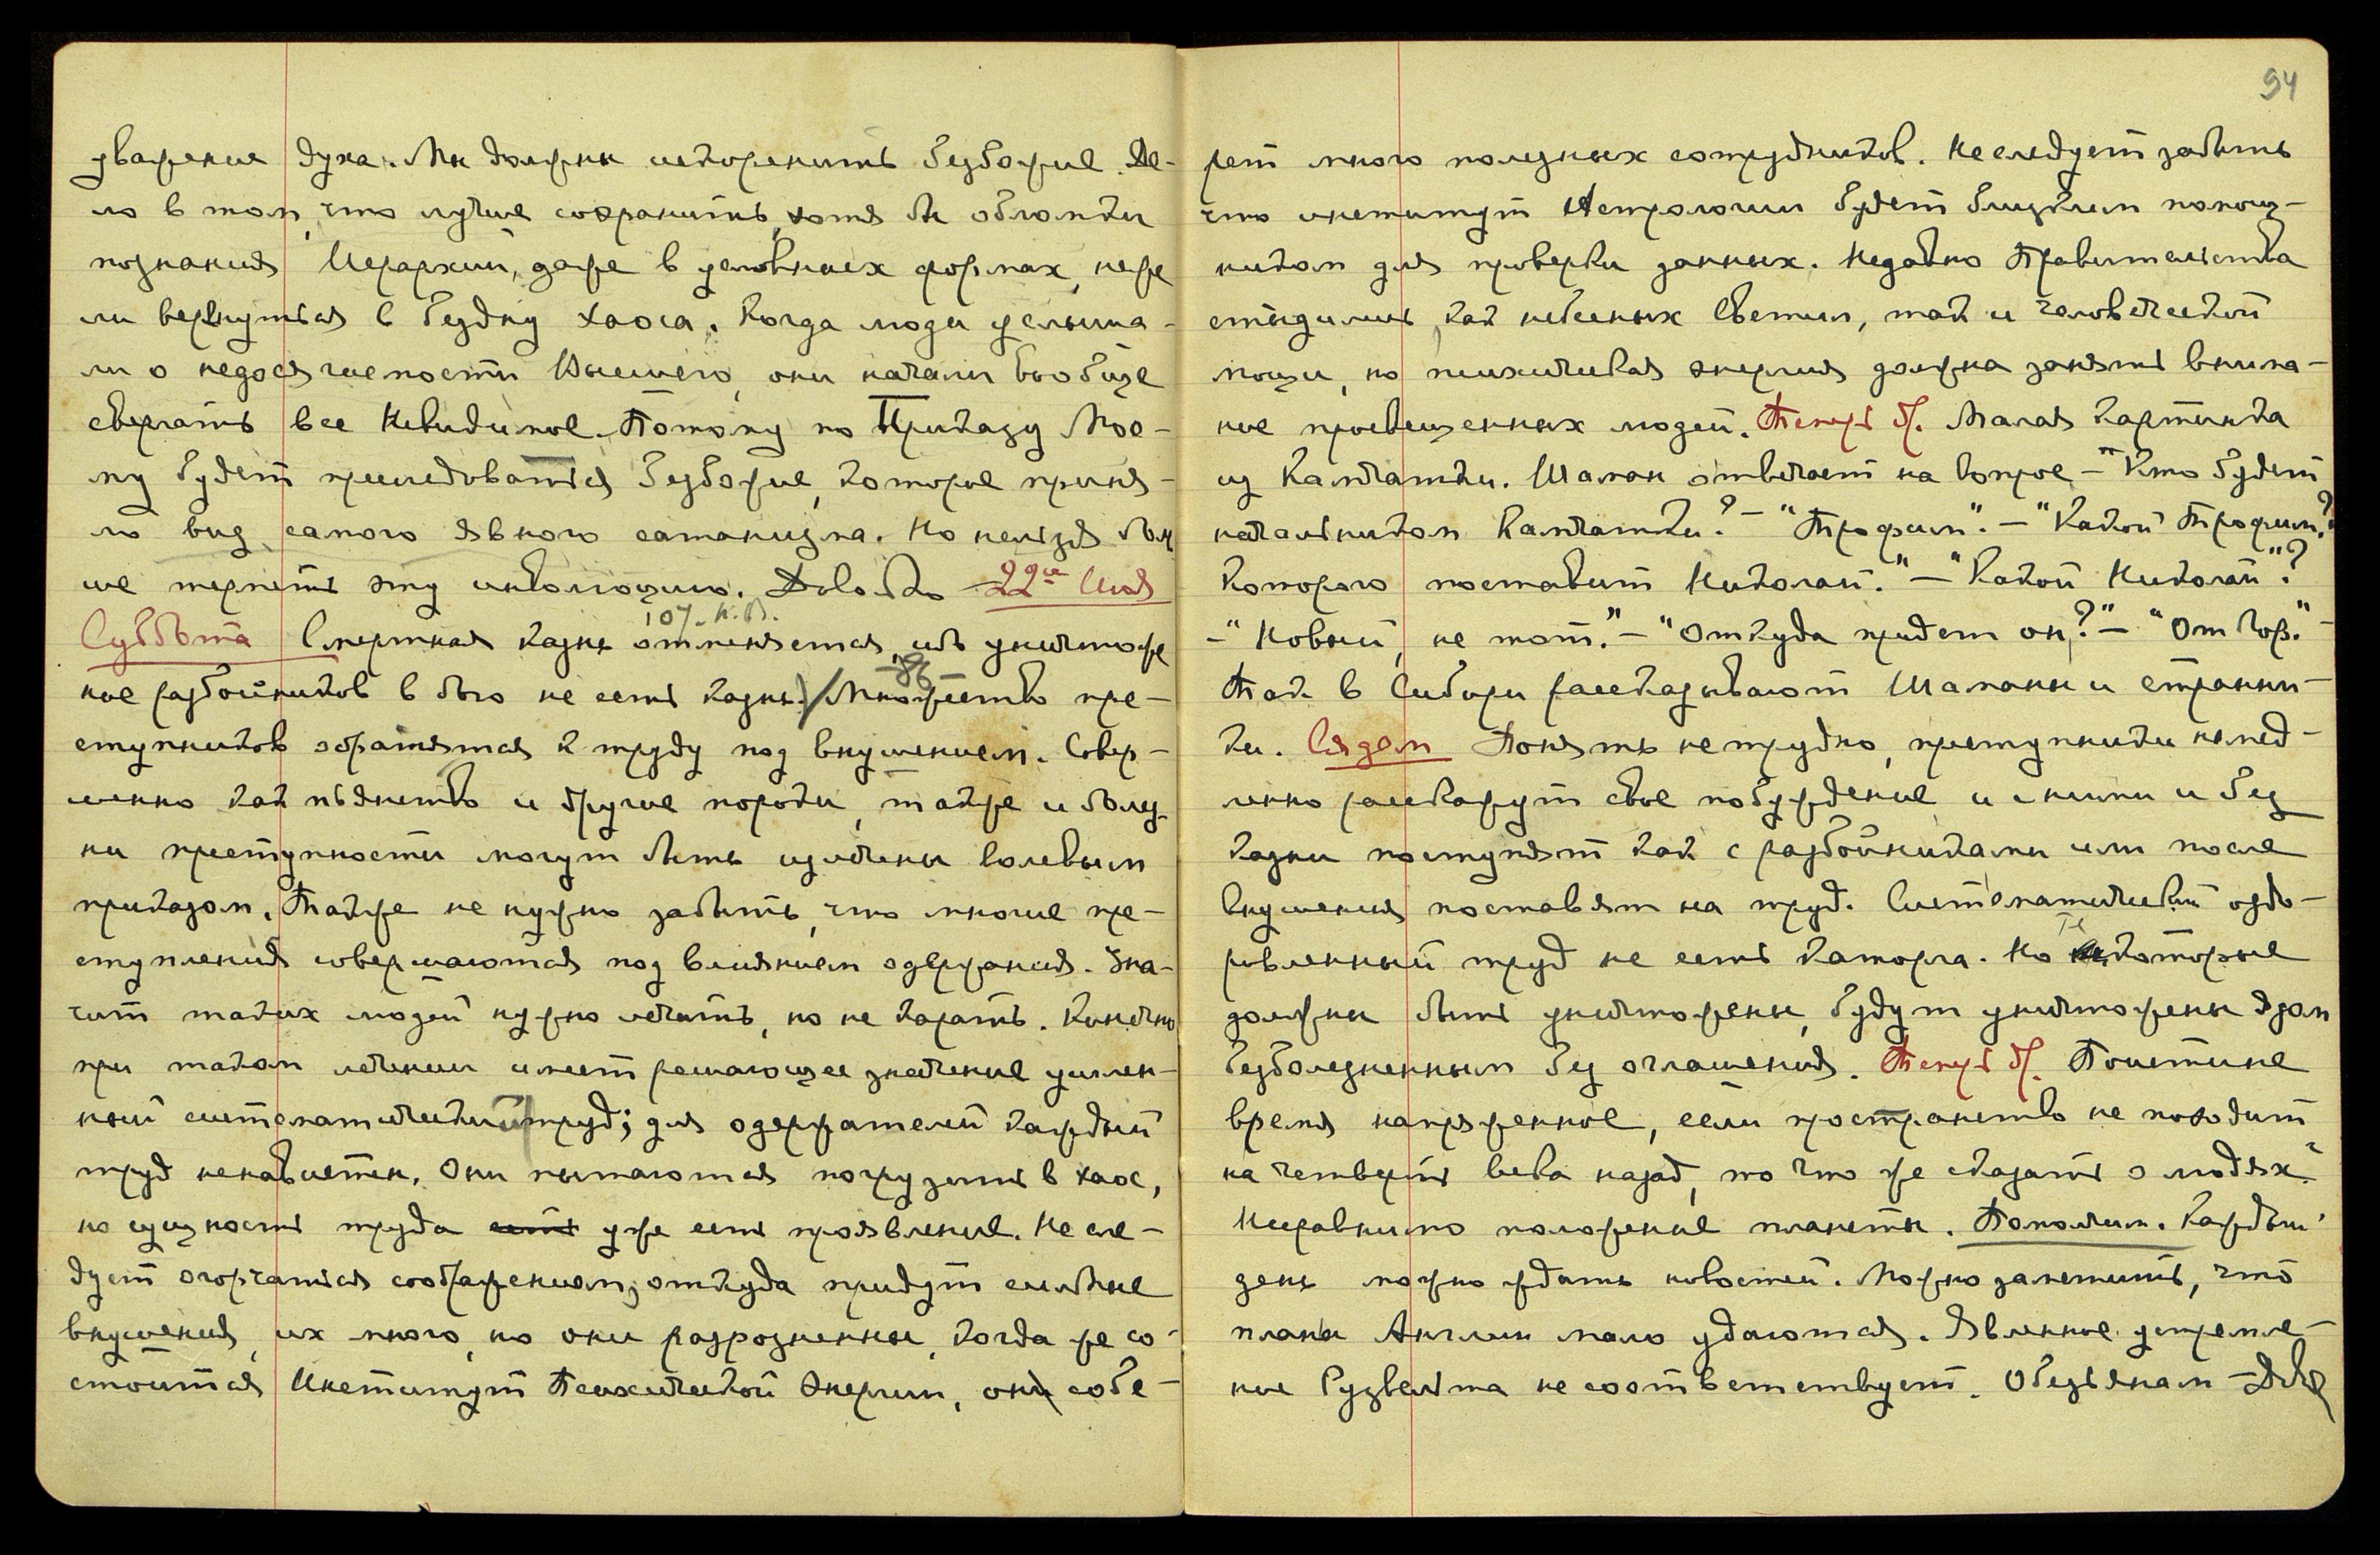 уважение духа. Мы должны искоренить безбожие. Де-
ло в том, что лучше сохранить, хотя бы обломки
познания Иерархии, даже в условных формах, неже
ли вернуться в бездну хаоса. Когда люди услыша-
ли о недосягаемости Высшего, они начали вообще
свергать все Невидимое. Потому по Приказу Мое-
му будет преследоваться безбожие, которое приня-
ло вид самого явного сатанизма. Но нельзя боль
ше терпеть эту инволюцию. Довольно 22ое Июля
107. К.В.
Суббота Смертная казнь отменяется, ибо уничтоже
ние разбойников в бою не есть казнь. Множество пре-
ступников обратятся к труду под внушением. Совер-
шенно как пьянство и другие пороки, также и болез
ни преступности могут быть излечены волевым
приказом. Также не нужно забыть, что многие пре-
ступления совершаются под влиянием одержания. Зна-
чит таких людей нужно лечить, но не карать. Конечно
при таком лечении имеет решающее значение усилен-
ный систематический труд; для одержателей каждый
труд ненавистен. Они пытаются погрузить в хаос,
но сущность труда есть уже есть проявление. Не сле-
дует огорчаться соображениям, откуда придут сильные
внушения, их много, но они разрозненны, когда же со-
стоится Институт Психической Энергии, он собе-
94
рет много полезных сотрудников. Не следует забыть
что институт Астрологии будет близким помощ-
ником для проверки данных. Недавно Правительства
стыдились, как небесных светил, так и человеческой
мощи, но психическая энергия должна занять внима-
ние просвещенных людей. Теперь др. Малая картинка
из Камчатки. Шаман отвечает на вопрос – "Кто будет
начальником Камчатки? – "Трофим". – "Какой Трофим?"
Которого поставит Николай." – "Какой Николай"?
– "Новый, не тот." – "Откуда придет он?" – "От Гор."
Так в Сибири рассказывают Шаманы и странни-
ки. Сядем Понять не трудно, преступники немед-
ленно расскажут свое побуждение и с ними и без
казни поступят как с разбойниками или после
внушения поставят на труд. Систематический оздо-
ровленный труд не есть каторга. Но те которые
должны быть уничтожены, будут уничтожены ядом
безболезненным без оглашения. Теперь др. Поистине
время напряженное, если пространство не походит
на четверть века назад, то что же сказать о людях?
Несравнимо положение планеты. Помолчим. Каждый
день можно ждать новостей. Можно заметить, что
планы Англии мало удаются. Явленное устремле-
ние Рузвельта не соответствует. Обезьянам –